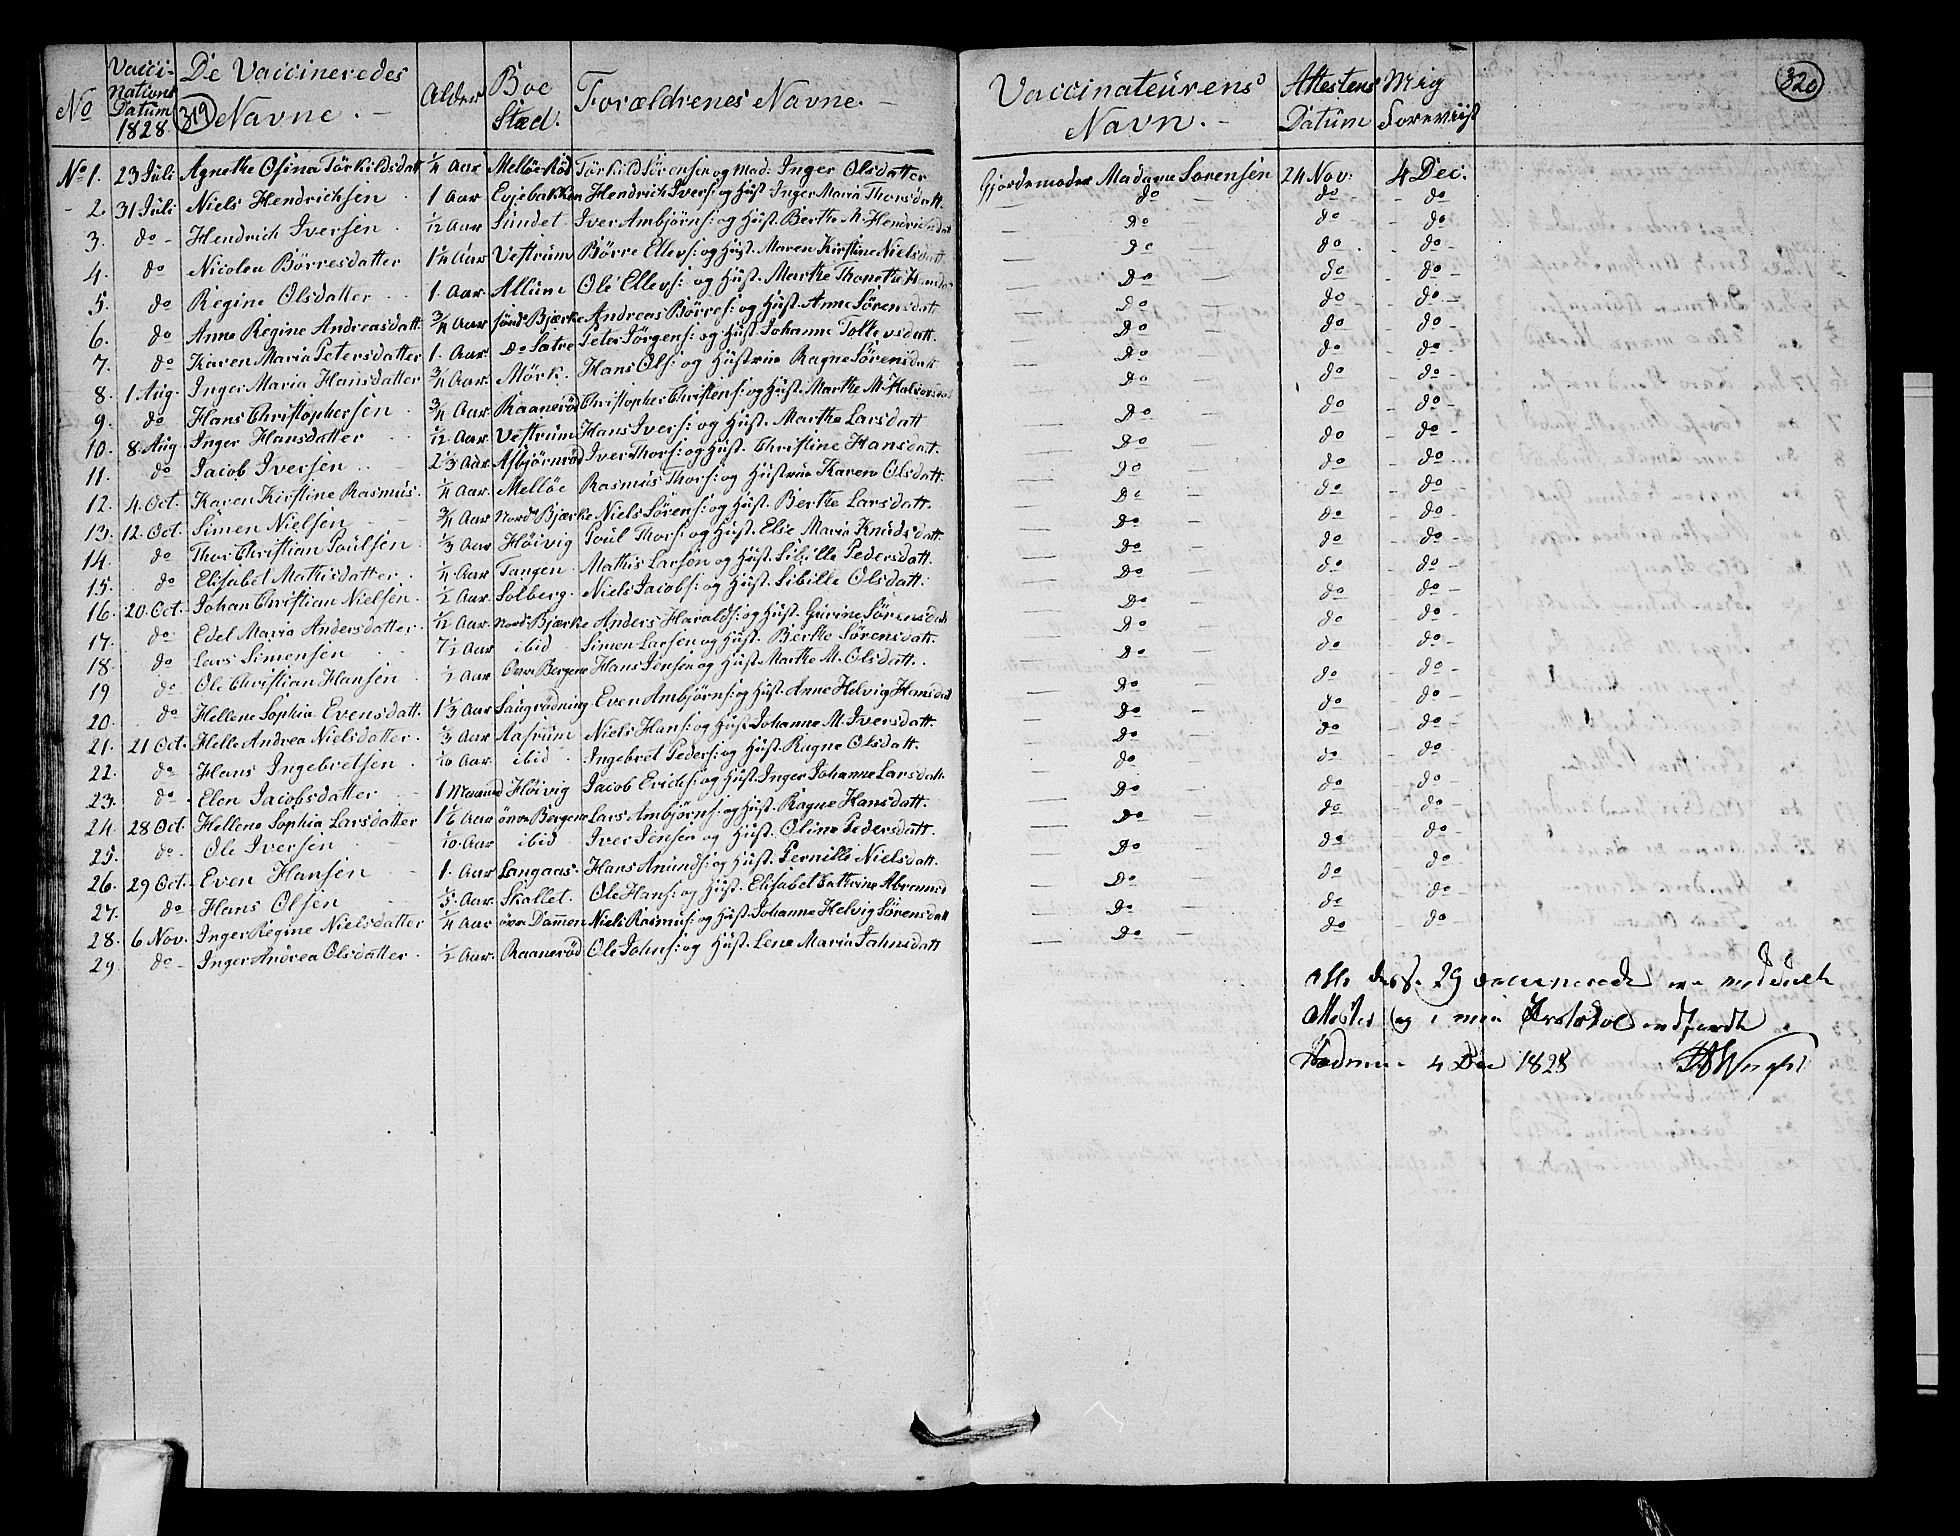 No | Vacci-nations Datum 1828 | De Vaccineredes Navne. | Alder | Boe Stæd. | Forældrenes Navne. | Vaccinateurens Navn. | Attestens Datum | Mig Foreviist
319
320
No 1. | 23 Juli | Agnethe Osina Törkildsdatt | ¼ Aar | Mellöe Röd | Törkild Sörensen og Mad: Inger Olsdatter | Gjordemoder Madame Sorensen | 24 Nov: | 4 Dec.
2. | 31 Juli | Niels Hendrichsen | 1 Aar | Evjebakken | Hendrich Ivers: og Hust: Inger Maria Thorsdatt. | do | do | do
3. | do | Hendrich Iversen | ½ Aar | Sundet | Iver Ambjörns: og Hust. Berthe M. Hendrichsdatt | do | do | do
4. | do | Nicolea Börresdatter | 1¼ Aar | Vestrum | Börre Ellevs: og Hust. Maren Kirstine Nielsdatt. | do | do | do
5. | do | Regine Olsdatter | 1 Aar | Allum | Ole Ellevs: og Hust. Marthe Thonette | do | do | do
6. | do | Anne Regine Andreasdatt. | ¾ Aar | sönd. Bjærke | Andreas Börres: og Hust. Anne Sörensdatt | do | do | do
7. | do | Karen Maria Petersdatter | 1. Aar | do Sætre | Peter Jörgens: og Hust. Johanne Tollevsdatt. | do | do | do
8. | 1 Aug. | Inger Maria Hansdatter | ¾ Aar | Mörk. | Hans Ols: og Hustrue Ragne Sörensdatt | do | do | do
9. | do | Hans Christophersen | ¾ Aar | Raaneröd | Christopher Christens: og Hust. Marthe M. Halvorsdatt | do | do | do
10. | 8. Aug. | Inger Hansdatter | ½ Aar | Vestrum | Hans Ivers: og Hust. Marthe Larsdatt | do | do | do
11. | do | Jacob Iversen | 2⅓ Aar | Asbjörnröd | Iver Thors: og Hust. Christine Hansdat. | do | do | do
12. | 4. Oct. | Karen Kirstine Rasmus. | ¼ Aar | Mellöe | Rasmus Thors: og Hustrue Karen Olsdatt. | do | do | do
13. | 12. Oct. | Simen Nielsen | ¾ Aar | Nord. Bjærke | Niels Sörens: og Hust. Berthe Larsdatt. | do | do | do
14. | do | Thor Christian Poulsen | ⅓ Aar | Höivig | Poul Thors: og Hust. Else Maria Knudsdatt. | do | do | do
15. | do | Elisabet Mathisdatter | ¼ Aar | Tangen | Mathis Larsen og Hust. Sibille Pedersdatt. | do | do | do
16. | 20 Oct. | Johan Christian Nielsen | ½ Aar | Solberg. | Niels Jacobs: og Hust. Sibille Olsdatt. | do | do | do
17. | do | Edel Maria Andersdatter | ½ Aar | Nord. Bjærke | Anders Haralds: og Hust. Gurine Sörensdatt | do | do | do
18. | do | Lars Simensen | 7½ Aar | ibid | Simen Larsen og Hust. Berthe Sörensdatt. | do | do | do
19 | do | Ole Christian Hansen | ½ Aar | övre Bergene | Hans Jensen og Hust. Marthe M. Olsdatt. | do | do | do
20. | do | Hellene Sophia Evensdatt. | 1⅓ Aar | Saugrödning | Even Ambjörns: og Hust. Anne Helvig Hansdatt | do | do | do
21. | 21 Oct. | Helle Andrea Nielsdatter | ⅓ Aar | Aasrum | Niels Hans: og Hust. Johanne M. Iversdatt. | do | do | do
22. | do | Hans Ingebretsen | Aar | ibid | Ingebret Peders: og Hust. Ragne Olsdatt. | do | do | do
23. | do | Elen Jacobsdatter | 1 Maaned | Höivig | Jacob Erichs: og Hust. Inger Johanne Larsdatt. | do | do | do
24. | 28 Oct. | Hellene Sophia Larsdatter | 1⅙ Aar | övre Bergene | Lars Ambjörns. og Hust. Ragne Hansdatt. | do | do | do
25. | do | Ole Iversen | Aar | ibid | Iver Jensen og Hust. Oline Pedersdatt. | do | do | do
26. | 29 Oct. | Even Hansen | 1. Aar | Langaas. | Hans Anunds: og Hust. Pernille Nielsdatt. | do | do | do
27. | do | Hans Olsen | Aar | Skallet. | Ole Hans: og Hust. Elisabet Cathrine | do | do | do
28. | 6 Nov. | Inger Regine Nielsdatter | ¼ Aar | övre Dammen | Niels Rasmus: og Hust. Johanne Helvig Sörensdatt | do | do | do
29. | do | Inger Andrea Olsdatter | ½ Aar. | Raaneröd | Ole Johns: og Hust. Lene Maria Jahnsdatt | do | do | do
29 vaccinerede meddeelt
Attester og i min Protocol indfördt
4 Dec 1828